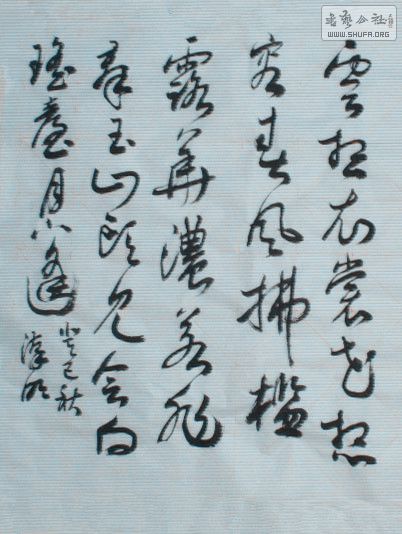 雲想衣裳花想
容春風拂檻
露華濃若非
群玉山頭見会向
瑤臺月下逢
癸巳秋
书艺公社
WWW.SHUFA.ORG